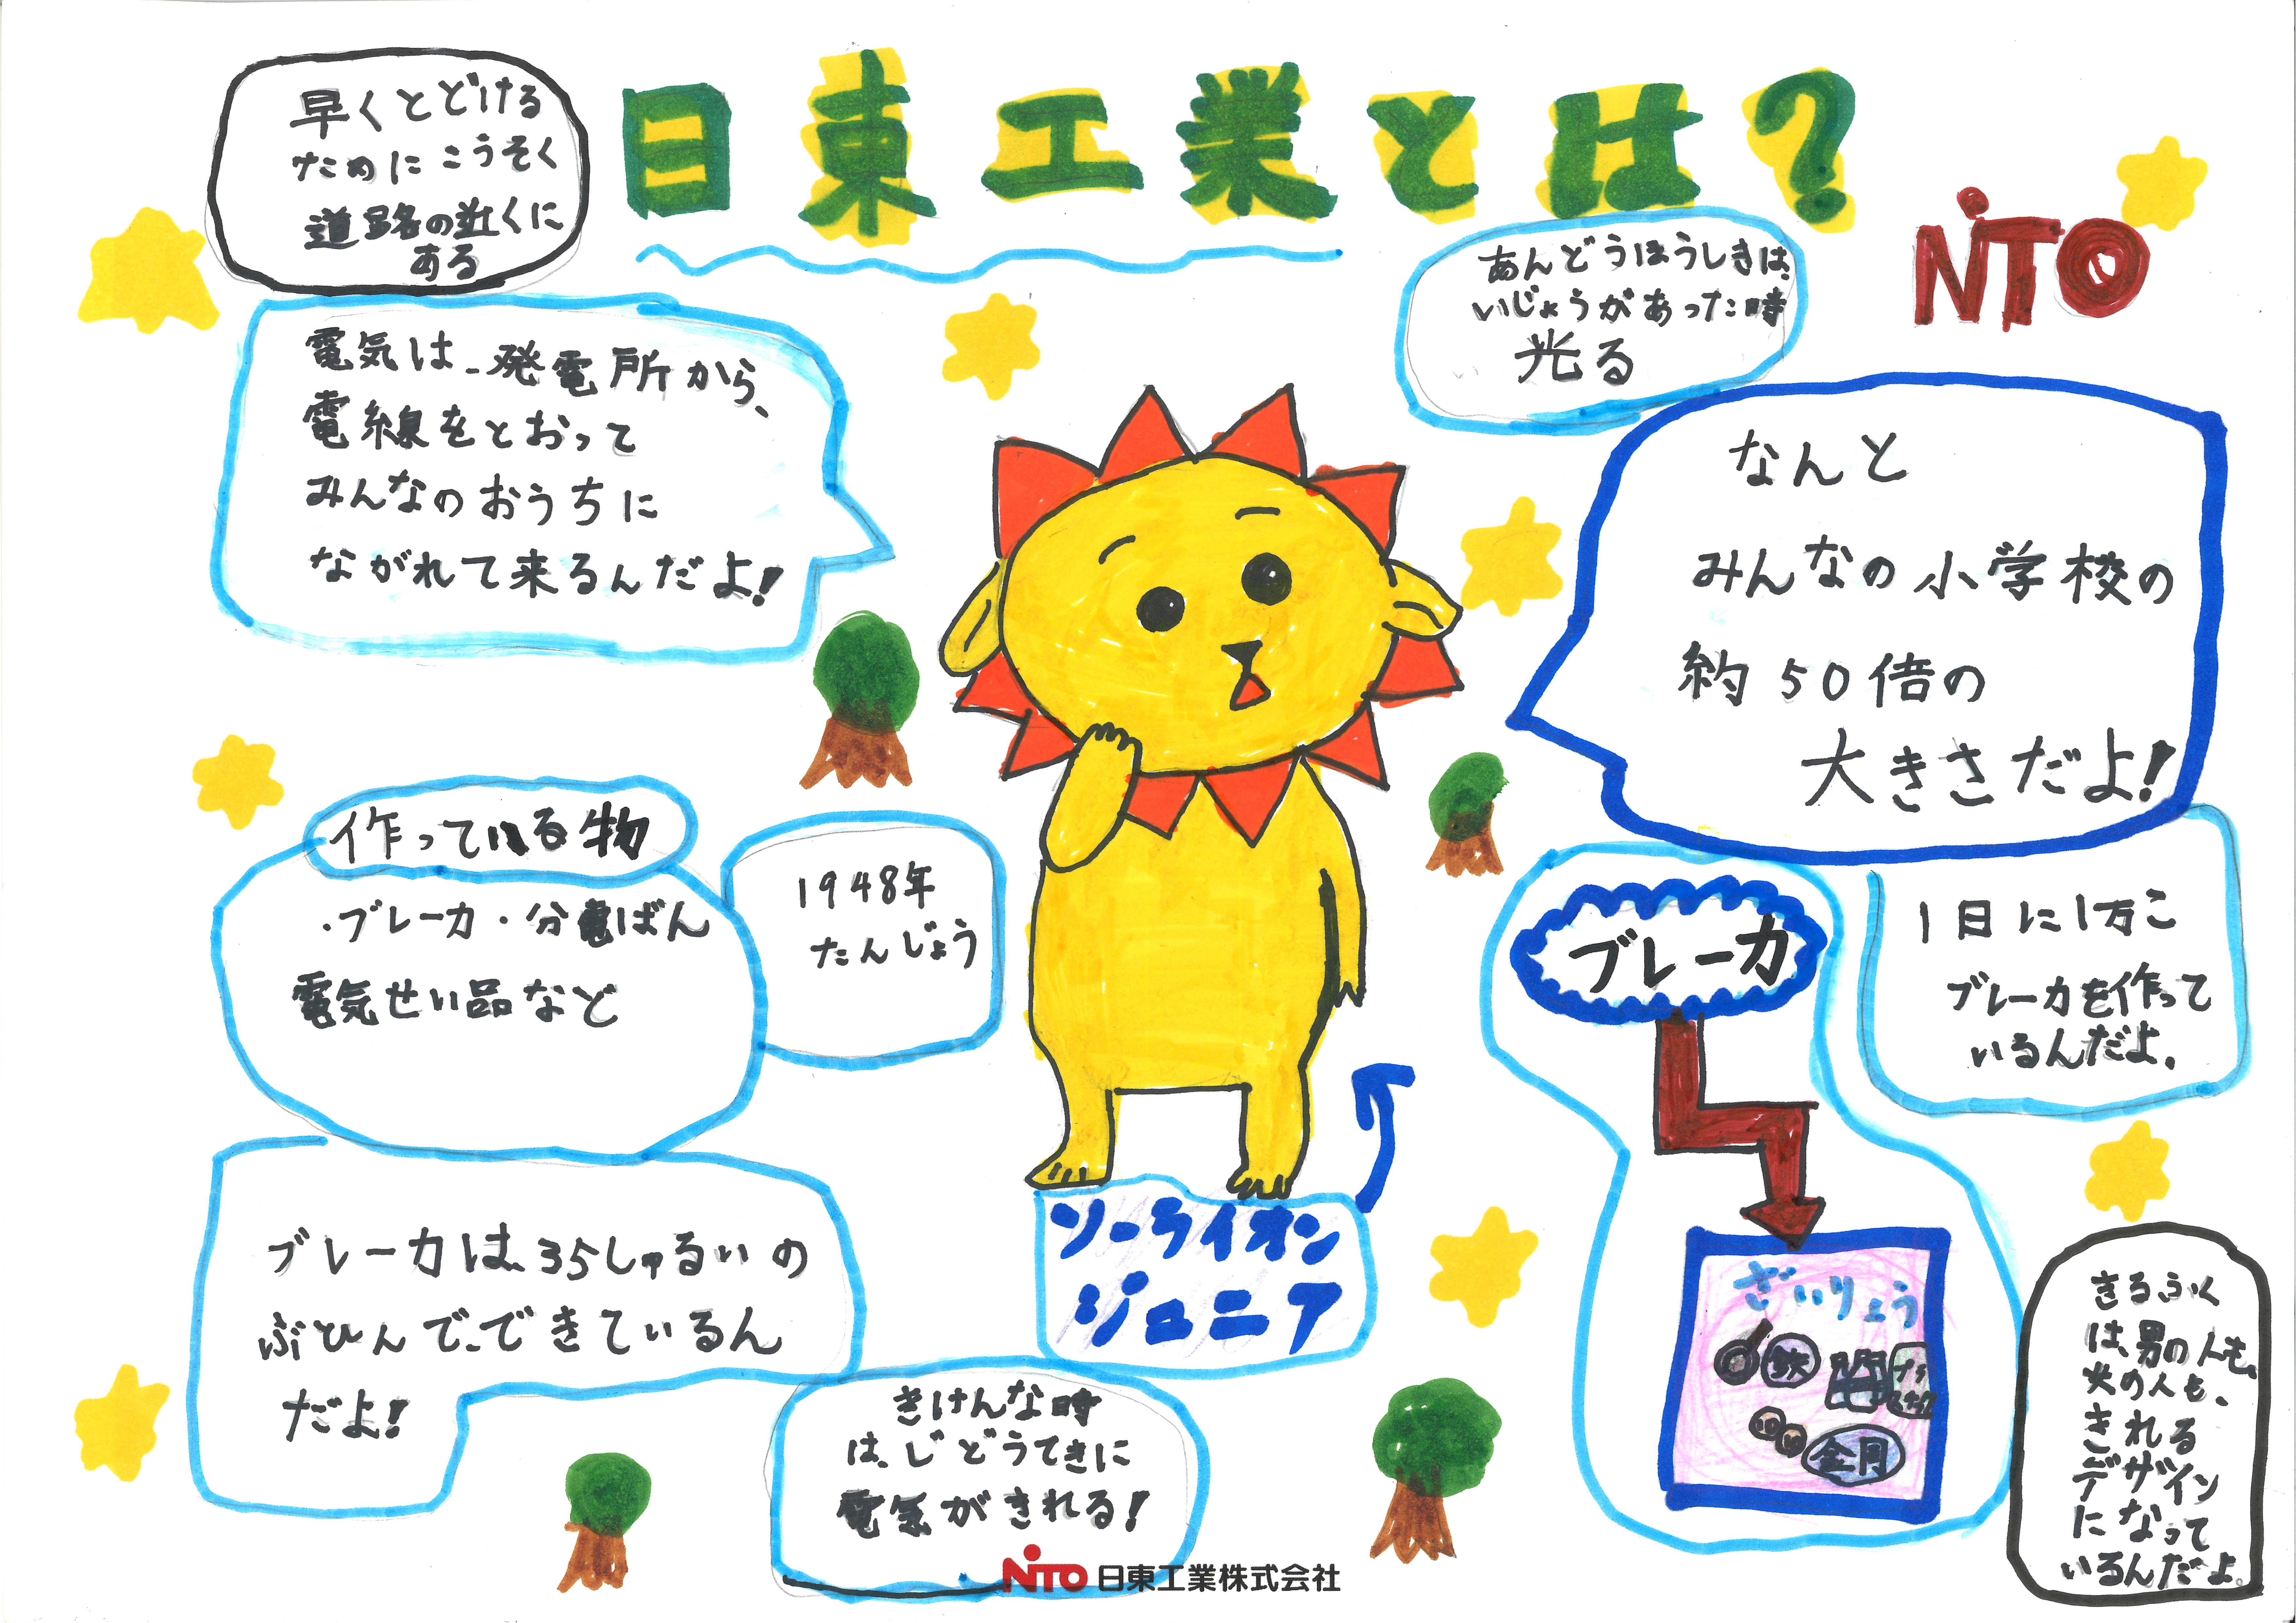 日東工業とは？
早くとどける
ためにこうそく
道路の近くに
ある
NITO
あんどうほうしきは、
いじょうがあった時
光る
電気は、発電所から、
電線をとおって
みんなのおうちに
ながれて来るんだよ!
なんと
みんなの小学校の
約50倍の
大きさだよ!
作っている物
・ブレーカ・分電ばん
電気せい品など
1948年
たんじょう
ブレーカ
1日に1万こ
ブレーカを作って
いるんだよ。
ブレーカは、35しゅるいの
ぶひんで、できているん
だよ!
ソーライオン
ジュニア
ざいりょう
鉄
きけんな時
は、じどうてきに
電気がきれる!
きるふく
は、男の人も、
女の人も、
きれる
デザイン
になって
いるんだよ。
NITO 日東工業株式会社